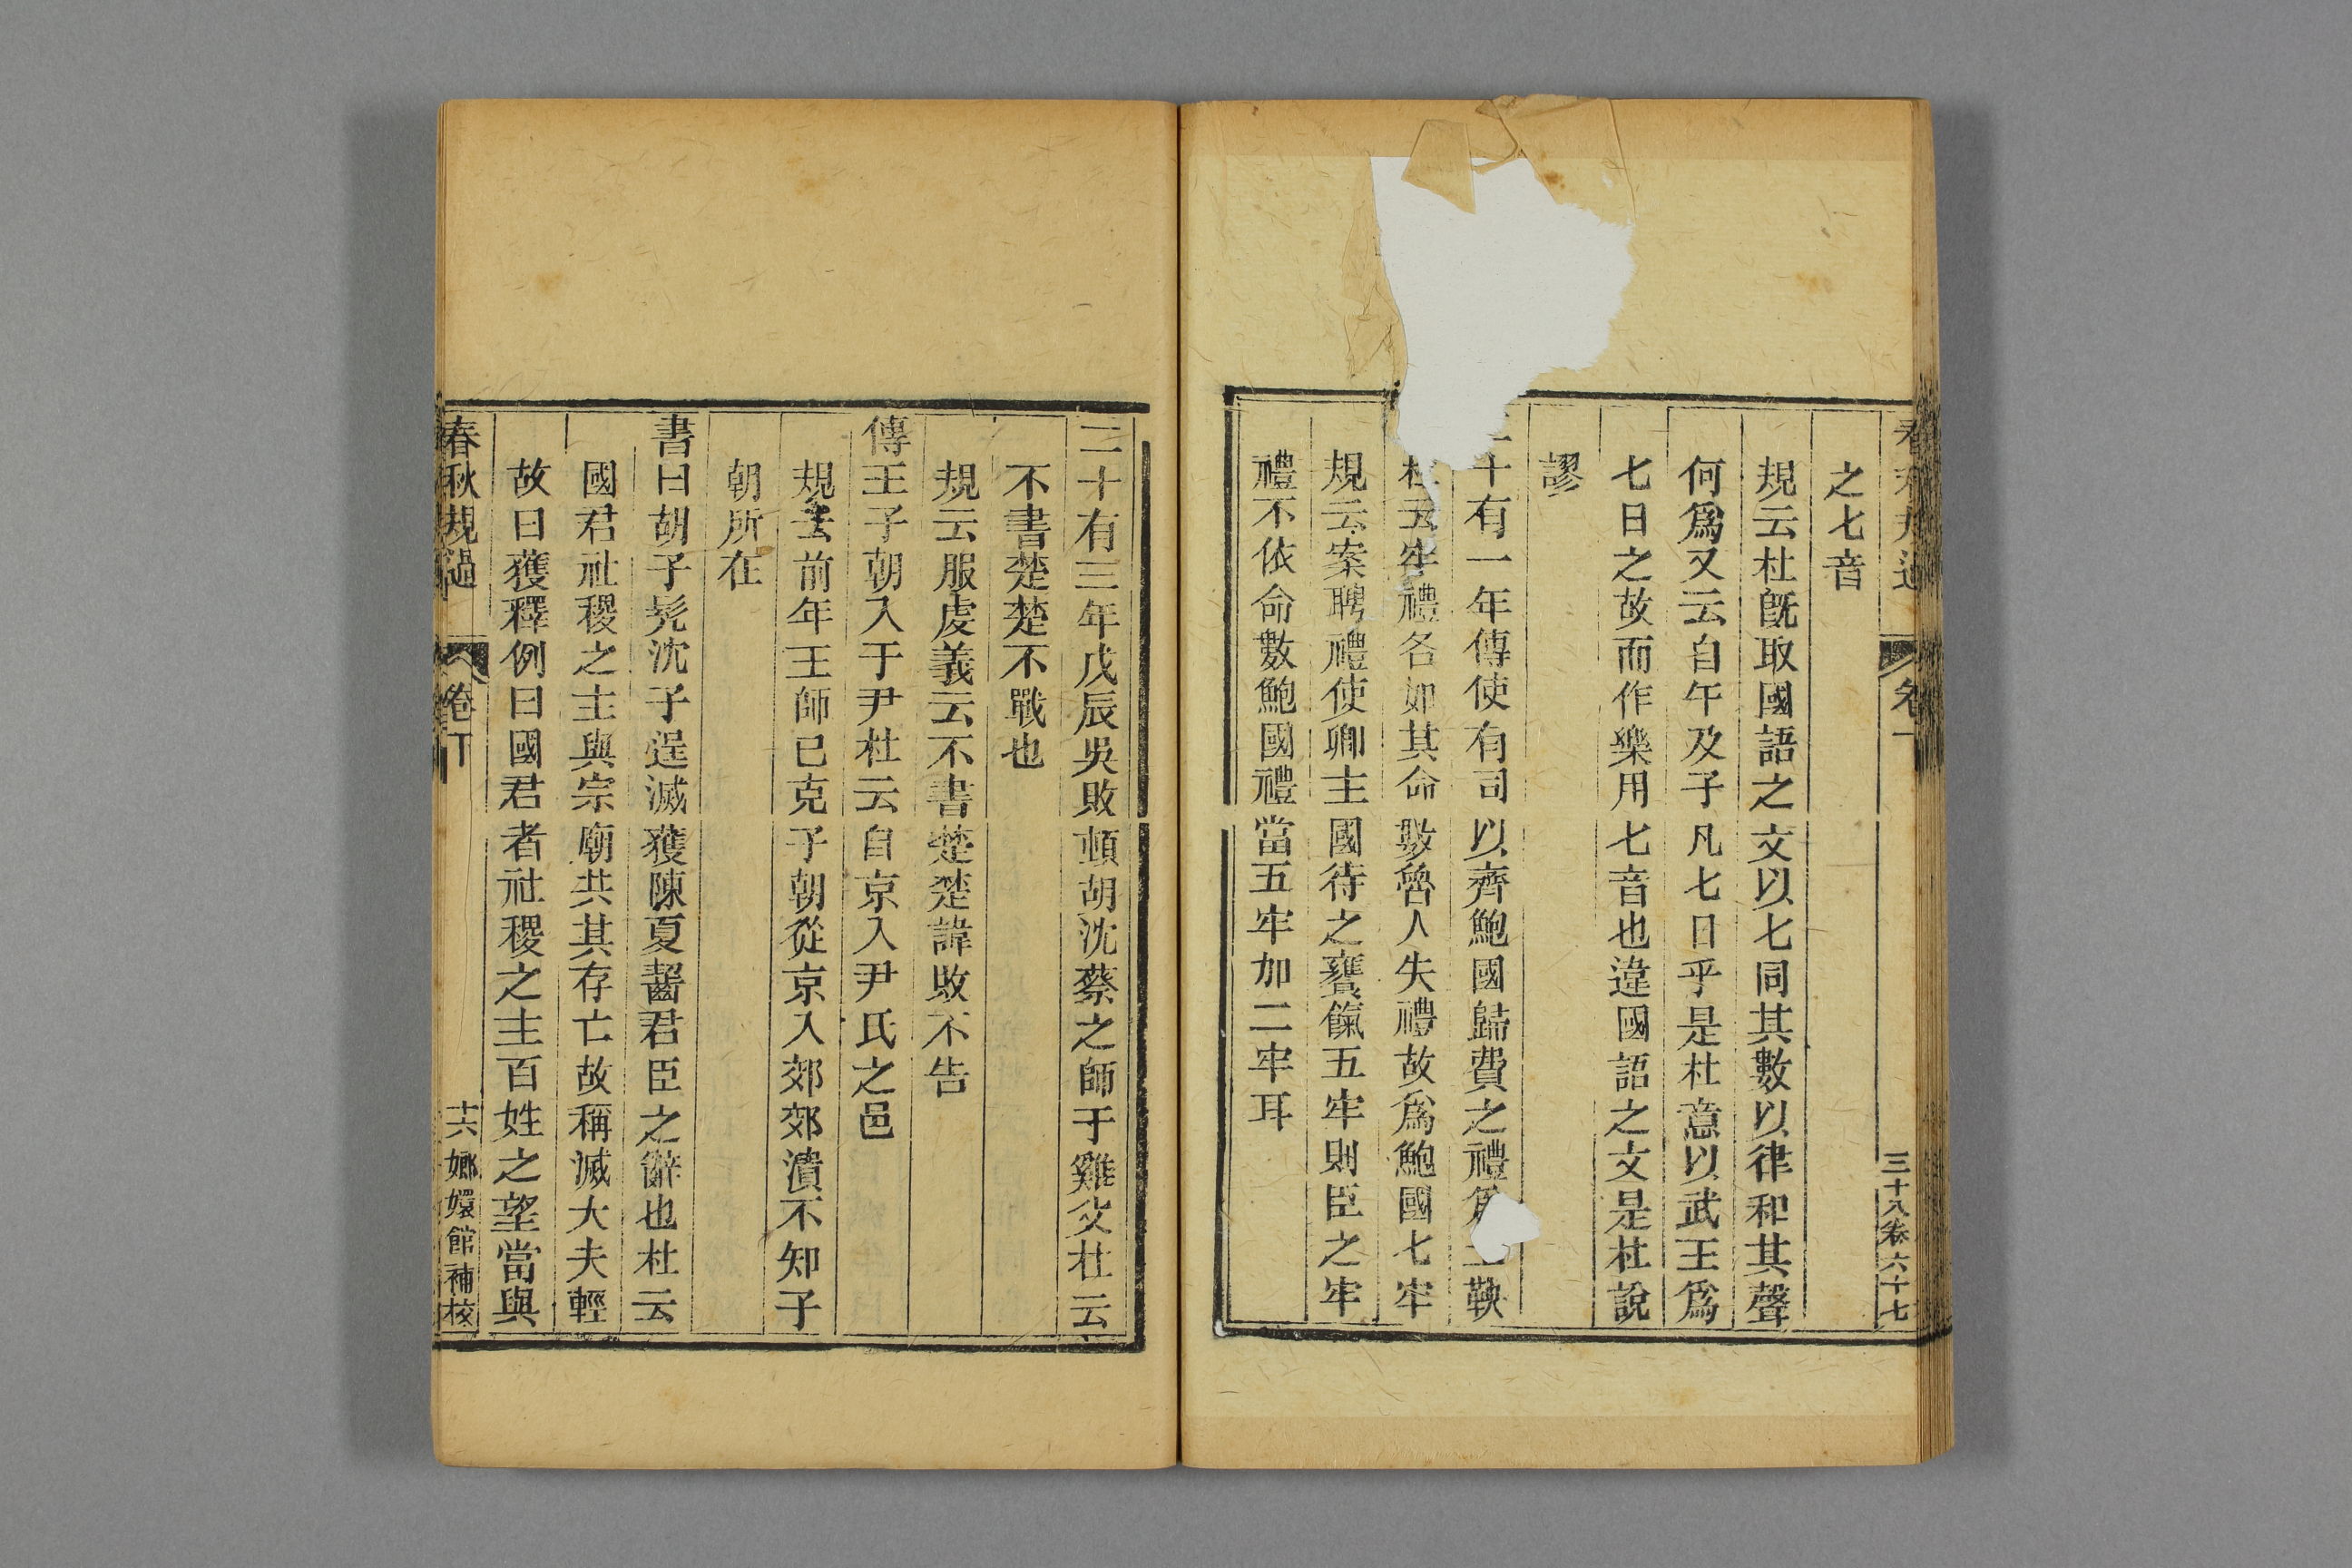 三十八卷六十七
之七音
規云杜既取國語之文以七同其數以律和其聲
何爲又云自午及子凡七日乎是杜意以武王爲
七日之故而作樂用七音也違國語之文是杜說
謬
十有一年傳使有司以齊鮑國歸費之禮爲士鞅
杜云牢禮各如其命數魯人失禮故爲鮑國七牢
規云案聘禮使卿主國待之饔餼五牢則臣之牢
禮不依命數鮑國禮當五牢加二牢耳
二十有三年戊辰吳敗頓胡沈蔡之師于雞父杜云
不書楚楚不戰也
規云服虔義云不書楚楚諱敗不告
傳王子朝入于尹杜云自京入尹氏之邑
規云前年王師已克子朝從京入郊郊潰不知子
朝所在
書曰胡子髡沈子逞滅獲陳夏齧君臣之辭也杜云
國君社稷之主與宗廟共其存亡故稱滅大夫輕
故曰獲釋例曰國君者社稷之主百姓之望當與
春秋規過 卷下 十六 嫏嬛館補校